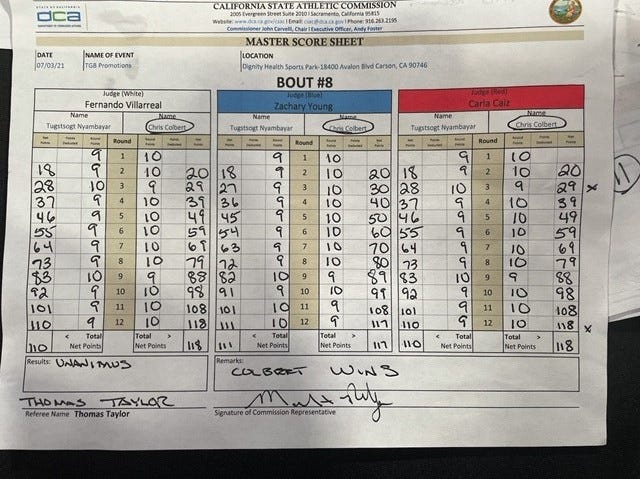 STATE OF CALIFORNIA
dca
DEPARTMENT OF CONSUMER AFFAIRS
CALIFORNIA STATE ATHLETIC COMMISSION
2005 Evergreen Street Suite 2010 | Sacramento, California 95815
Website: www.dca.ca.gov/csac | Email: csac@dca.ca.gov | Phone: 916.263.2195
Commissioner John Carvelli, Chair | Executive Officer, Andy Foster
MASTER SCORE SHEET
DATE NAME OF EVENT LOCATION
07/03/21 TGB Promotions Dignity Health Sports Park-18400 Avalon Blvd Carson, CA 90746
BOUT #8
Judge (White) Judge (Blue) Judge (Red)
Fernando Villarreal Zachary Young Carla Caiz
Name Name Name Name Name Name
Tugstsogt Nyambayar Chris Colbert Tugstsogt Nyambayar Chris Colbert Tugstsogt Nyambayar Chris Colbert
Net Points Points Deducted Round Points Round Round Points Points Deducted Net Points Net Points Points Deducted Round Points Round Round Points Points Deducted Net Points Net Points Points Deducted Round Points Round Round Points Points Deducted Net Points
9 1 10 9 1 10 9 1 10
18 9 2 10 20 18 9 2 10 20 18 9 2 10 20
28 10 3 9 29 27 9 3 10 30 28 10 3 9 29 x
37 9 4 10 39 36 9 4 10 40 37 9 4 10 39
46 9 5 10 49 45 9 5 10 50 46 9 5 10 49
55 9 6 10 59 54 9 6 10 60 55 9 6 10 59
64 9 7 10 69 63 9 7 10 70 64 9 7 10 69
73 9 8 10 79 72 9 8 10 80 73 9 8 10 79
83 10 9 9 88 82 10 9 9 89 83 10 9 9 88
92 9 10 10 98 91 9 10 10 99 92 9 10 10 98
101 9 11 10 108 101 10 11 9 108 101 9 11 10 108
110 9 12 10 118 111 10 12 9 117 110 9 12 10 118 x
< Total Total > < Total Total > < Total Total >
110 Net Points Net Points 118 111 Net Points Net Points 117 110 Net Points Net Points 118
Results: UNANIMUS Remarks: COLBERT WINS
THOMAS TAYLOR
Referee Name Thomas Taylor Signature of Commission Representative